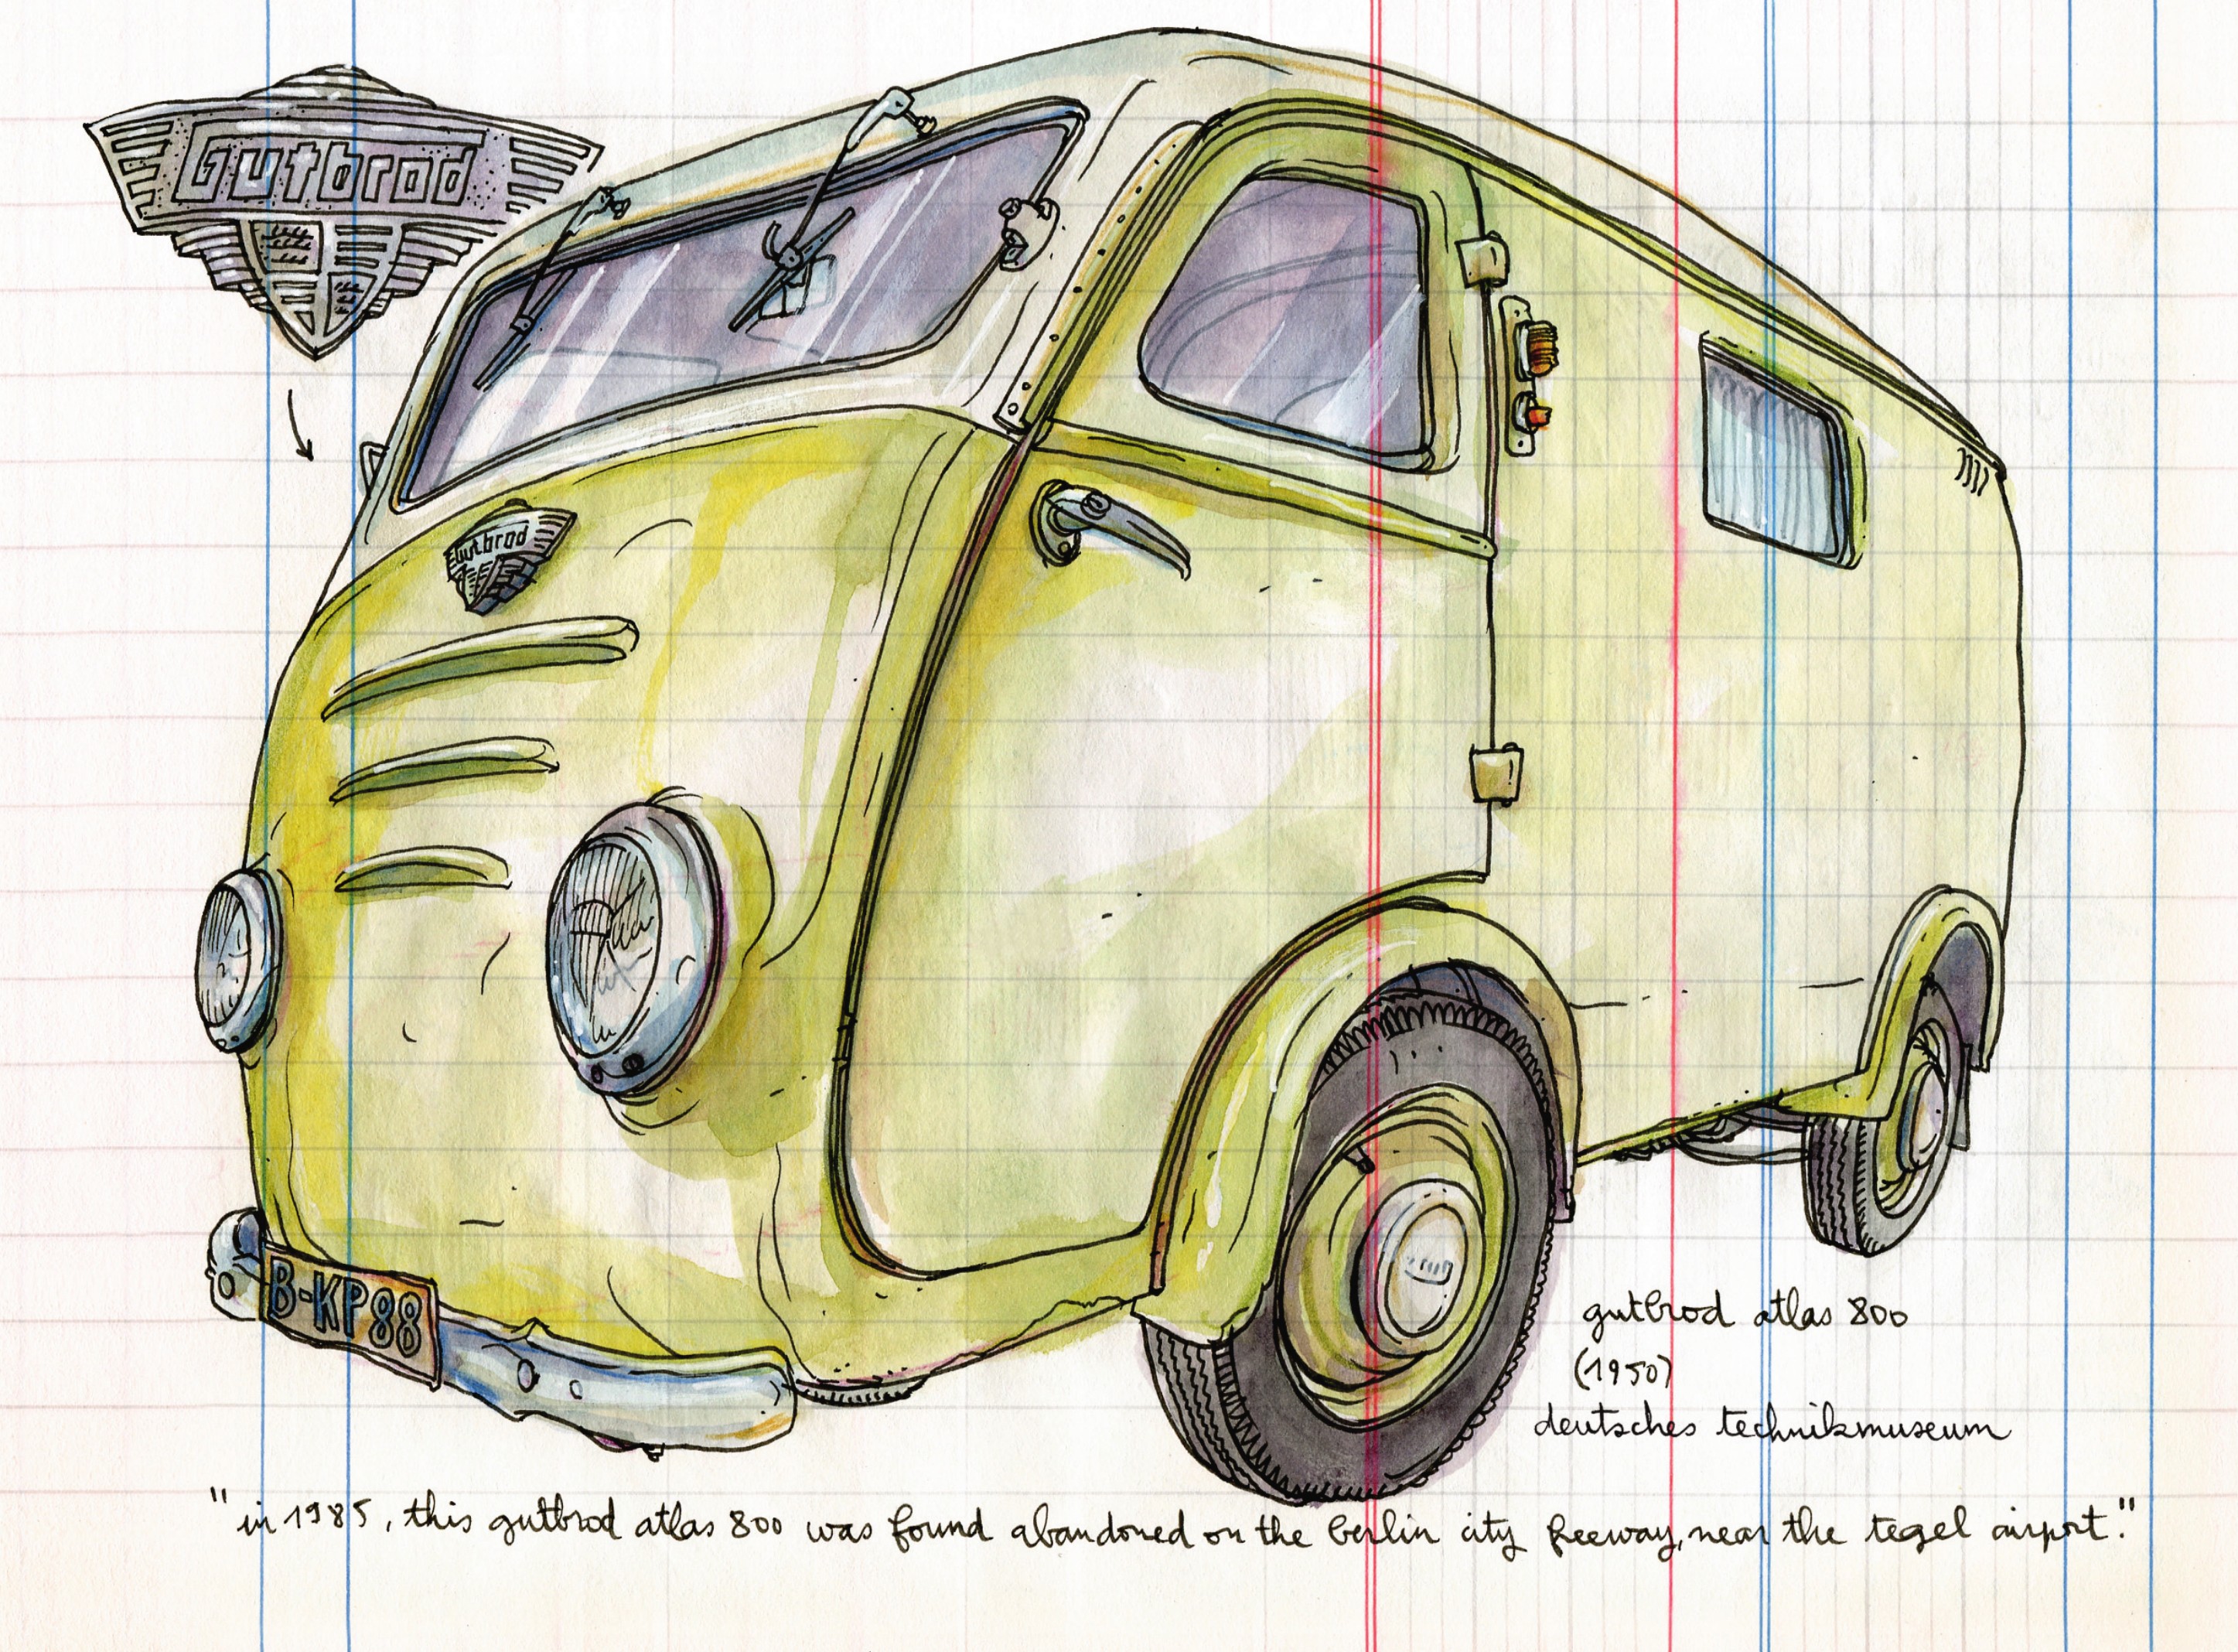 Gutbrod
Gutbrod
B-KP88
gutbrod atlas 800
(1950)
deutsches technikmuseum
"in 1985, this gutbrod atlas 800 was found abandoned on the berlin city freeway, near the tegel airport."